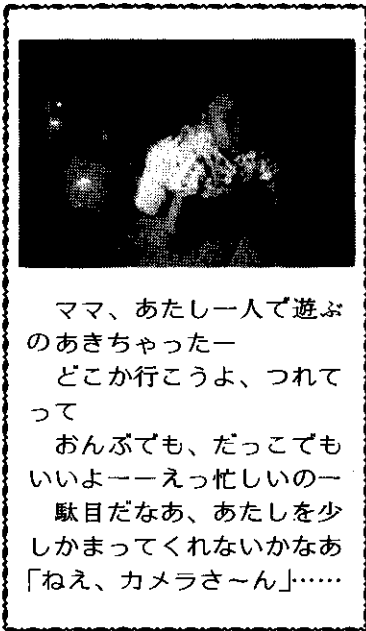 ママ、あたし一人で遊ぶ
のあきちゃったー
どこか行こうよ、つれて
って
おんぶでも、だっこでも
いいよーーえっ忙しいのー
駄目だなあ、あたしを少
しかまってくれないかなあ
「ねえ、カメラさ～ん」……